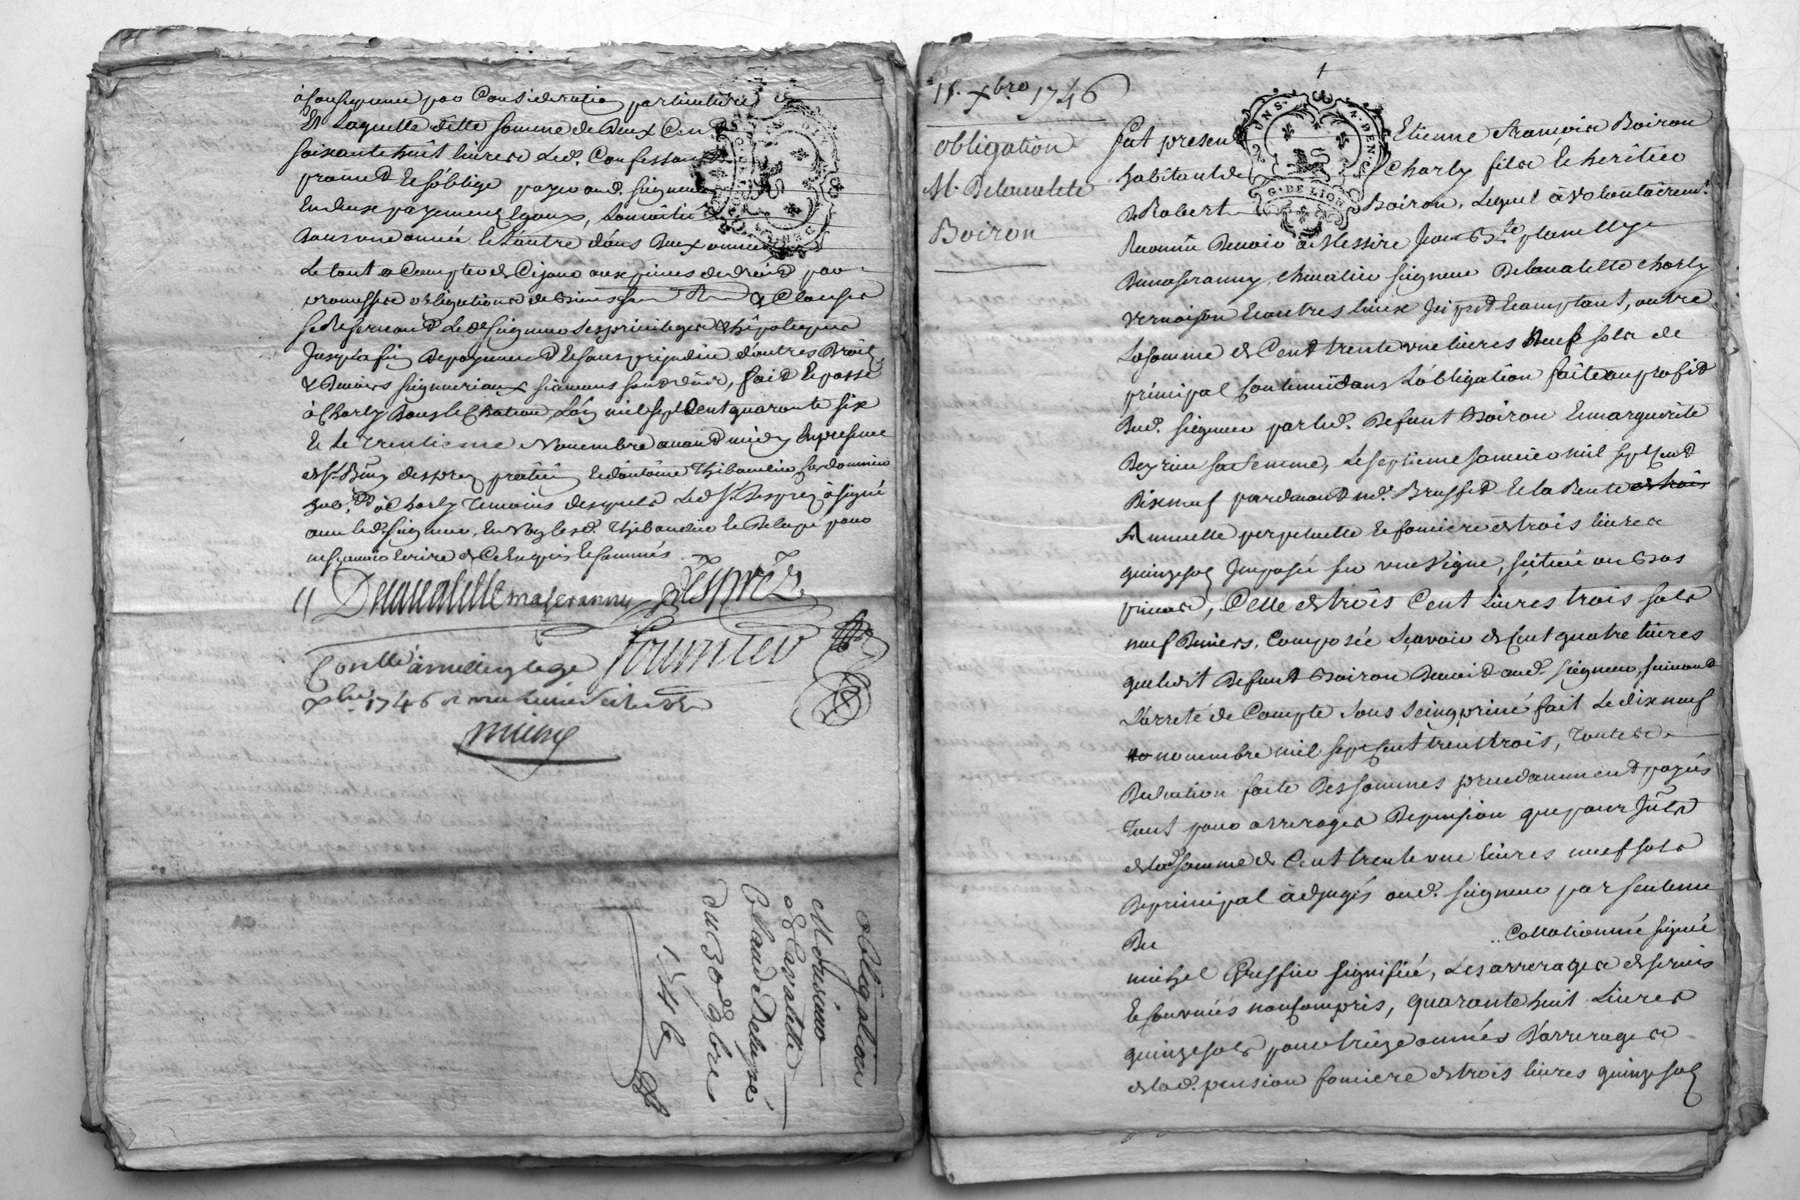 par Consideration particuliere
Et Laquelle ditte somme de Deux Cent
soixante huit livres Led. Confessant
promet & s'oblige payer aud. seigneur
En deux payements Egaux, La moitié
Dans une année & L'autre dans Deux années
Le tout a Compter de Ce jour aux peines de droit par
promesses obligations & Clauses
se Reservant Led. seigneur ses privileges & hipoteques
Jusqu'a fin De payement & sans prejudice d'autres Droits
& Devoirs seigneuriaux fait & passé
à Charly Dans le Chateau L'an mil sept Cent quarante six
& le trentieme Novembre avant midy En presence
de Sr. desprez praticien & d'antoine Thibaudier
à Charly Temoins desquels Led. Sr. Desprez à signé
avec led. seigneur, & Non led. Thibaudier & Delaye pour
ne scavoir Ecrire de Ce Enquis & sommés
Delavalette maseranny Desprez
Conllé à millery le 9e Fournier
xbre 1746
obligation
Monsieur
De Lavalette
Claude Delaye
du 30 9bre
1746
11. xbre 1746
obligation
M. Delavalette
Boiron
fut present Etienne François Boiron
habitant de Charly fils & heritier
de Robert Boiron, Lequel à volontairemt.
Reconnu Devoir à Messire Jean Bte. planelly
Demaseranny, chevalier seigneur Delavalette Charly
vernaison & autres lieux Icy prest & acceptant, outre
La somme de Cent trente une livres Neuf sols de
principal Contenüe dans L'obligation faite au profit
Dud. seigneur par led. Defunt Boiron & marguerite
Beyrieu sa femme, Le septieme janvier mil sept Cent
Dix neuf pardevant Me. Brossed & la Rente
Annuelle perpetuelle & fonciere de trois livres
quinze sols Imposée sur une Vigne, scituée au Bas
privas, Celle de trois Cent Livres trois sols
neuf Deniers, Composée Scavoir de Cent quatre livres
que ledit Defunt Boiron Devoit aud. seigneur, suivant
L'arreté de Compte sous seing privé fait Le dix neuf
novembre mil sept Cent trente trois, toutes
Deduction faite Des sommes precedamment payées
Tant pour arrerages De pension que pour Jnts
de lad. somme de Cent trente une livres neuf sols
De principal àdjugés aud. seigneur par sentence
Du Collationné signée
michel Gressin signifiée, Les arrerages
quarante huit Livres
quinze sols pour treize années D'arrerages
de lad. pension fonciere de trois livres quinze sols
G. DE LION